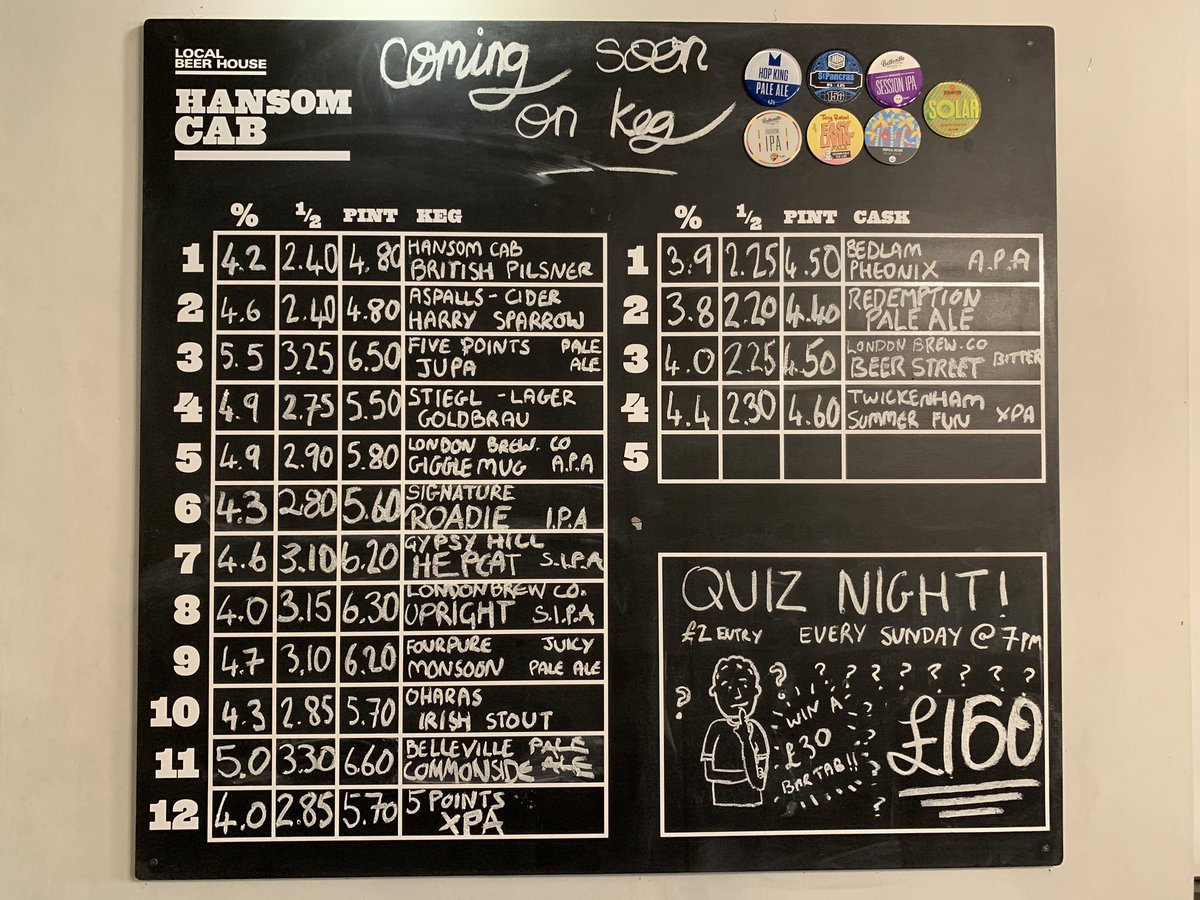 LOCAL
BEER HOUSE
HANSOM
CAB
Coming soon
on keg
HOP KING
PALE ALE
St Pancras
Belleville
SESSION IPA
SOLAR
Belleville
IPA
Tiny Rebel
EASY
LIVIN
PALE
% 1/2 PINT KEG
1 4.2 2.40 4.80 HANSOM CAB
BRITISH PILSNER
2 4.6 2.40 4.80 ASPALLS - CIDER
HARRY SPARROW
3 5.5 3.25 6.50 FIVE POINTS PALE
JUPA ALE
4 4.9 2.75 5.50 STIEGL - LAGER
GOLDBRAU
5 4.9 2.90 5.80 LONDON BREW. CO
GIGGLE MUG A.P.A
6 4.3 2.80 5.60 SIGNATURE
ROADIE I.P.A
7 4.6 3.10 6.20 GYPSY HILL
HEPCAT S.I.P.A
8 4.0 3.15 6.30 LONDON BREW CO.
UPRIGHT S.I.P.A
9 4.7 3.10 6.20 FOURPURE JUICY
MONSOON PALE ALE
10 4.3 2.85 5.70 OHARAS
IRISH STOUT
11 5.0 3.30 6.60 BELLEVILLE PALE
COMMONSIDE ALE
12 4.0 2.85 5.70 5 POINTS
XPA
% 1/2 PINT CASK
1 3.9 2.25 4.50 BEDLAM
PHEONIX A.P.A
2 3.8 2.20 4.40 REDEMPTION
PALE ALE
3 4.0 2.25 4.50 LONDON BREW.CO
BEER STREET BITTER
4 4.4 2.30 4.60 TWICKENHAM
SUMMER FUN XPA
5
QUIZ NIGHT!
£2 ENTRY EVERY SUNDAY @ 7PM
? ? ? ? ? ? ? ?
?
WIN A
£30
BAR TAB!!
? ? ? ? ?
£160